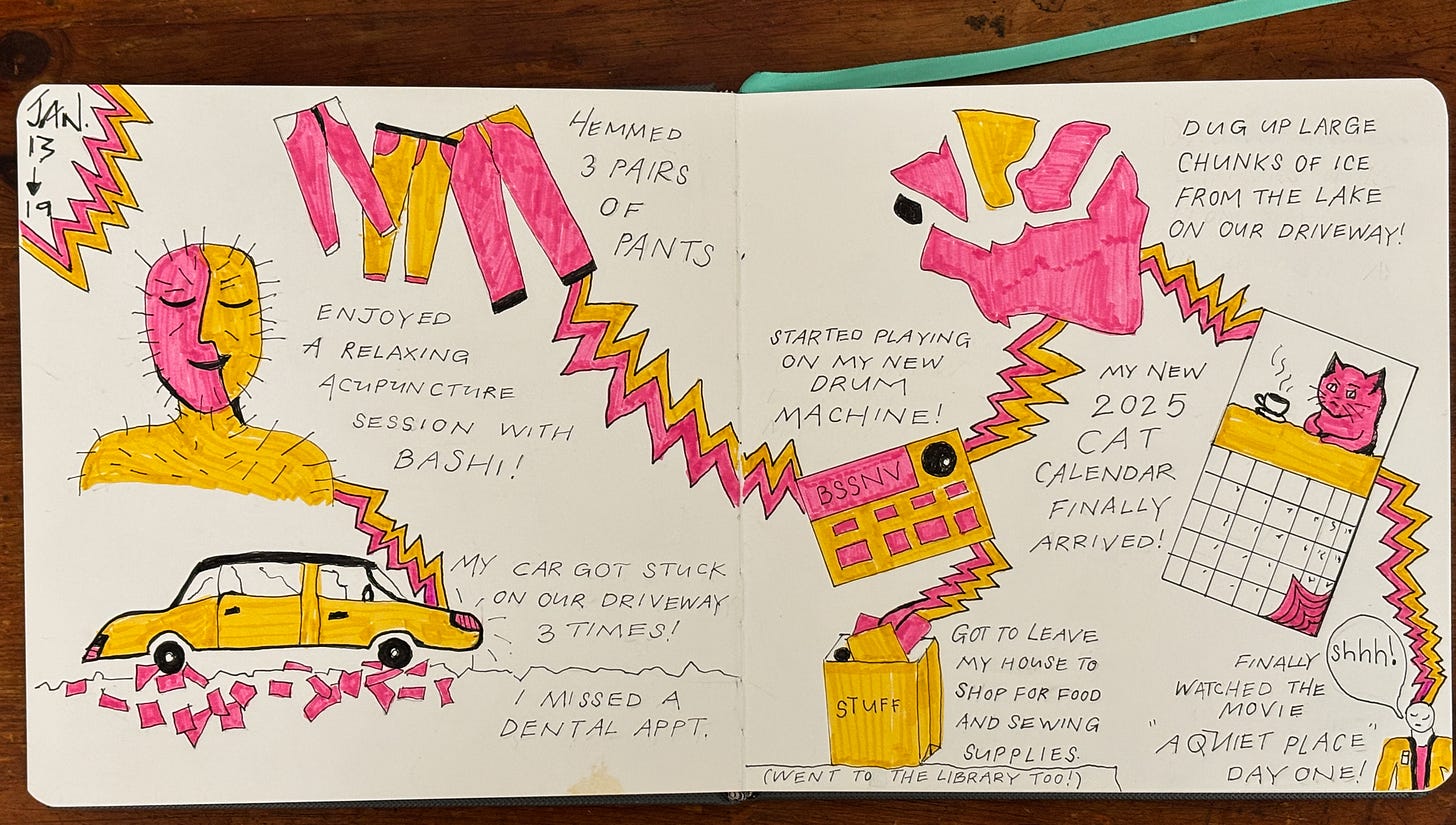 JAN.
13
19
HEMMED
3 PAIRS
OF
PANTS
ENJOYED
A RELAXING
ACUPUNCTURE
SESSION WITH
BASHI!
MY CAR GOT STUCK
ON OUR DRIVEWAY
3 TIMES!
I MISSED A
DENTAL APPT.
DUG UP LARGE
CHUNKS OF ICE
FROM THE LAKE
ON OUR DRIVEWAY!
STARTED PLAYING
ON MY NEW
DRUM
MACHINE!
BSSNV
MY NEW
2025
CAT
CALENDAR
FINALLY
ARRIVED!
STUFF
GOT TO LEAVE
MY HOUSE TO
SHOP FOR FOOD
AND SEWING
SUPPLIES.
(WENT TO THE LIBRARY TOO!)
shhh!
FINALLY
WATCHED THE
MOVIE
"A QUIET PLACE"
DAY ONE!